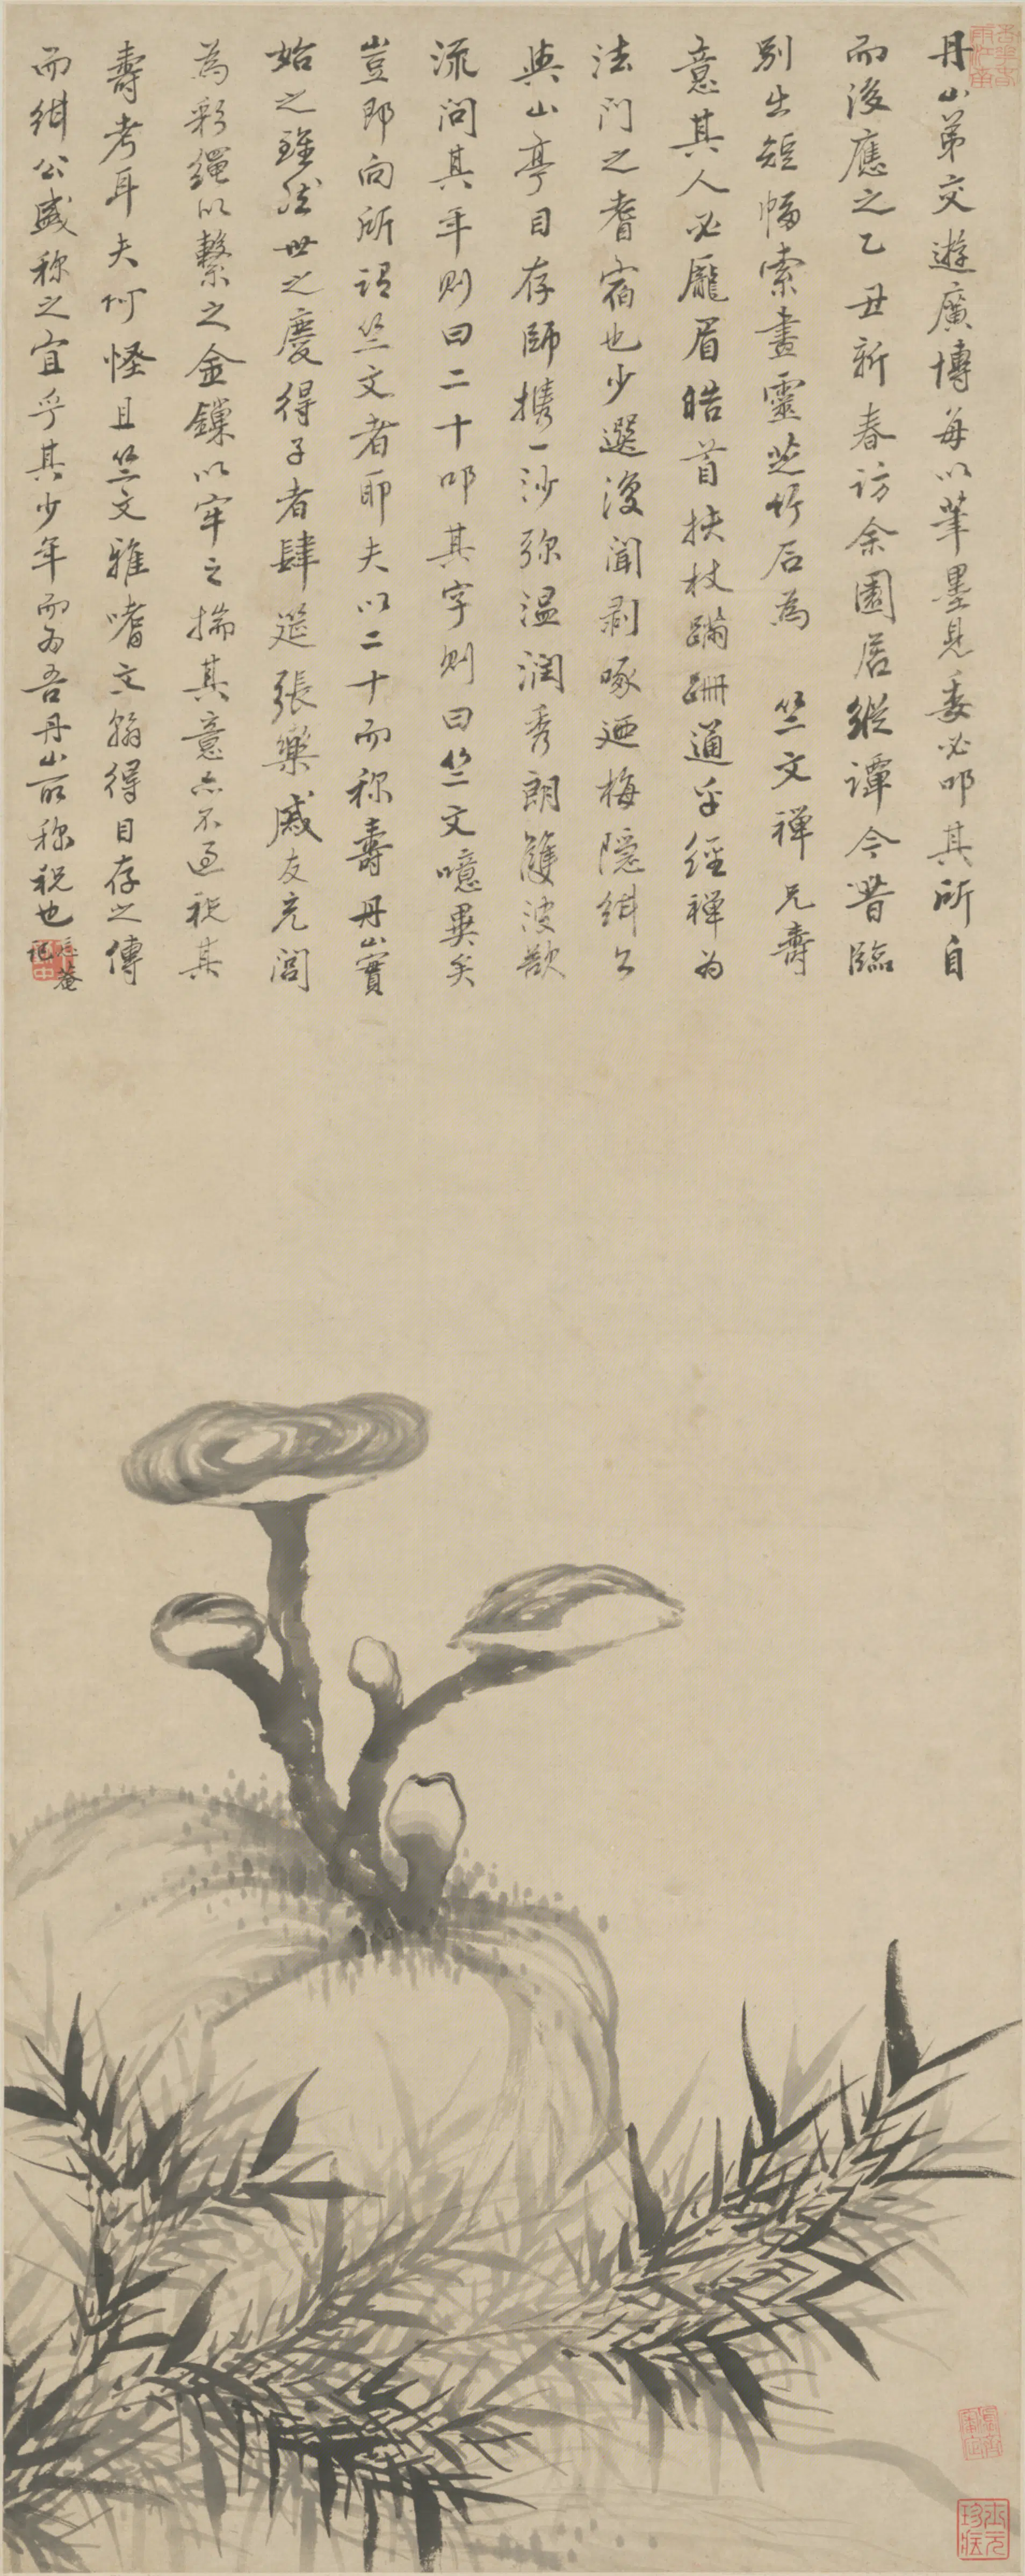 丹山弟交遊廣博每以筆墨見委必叩其所自
而後應之乙丑新春訪余園居縱譚今昔臨
別出短幅索畫靈芝竹石為竺文禪兄壽
意其人必龐眉皓首扶杖蹣跚通乎經禪为
法门之耆宿也少選復聞剥啄廼梅隱緝公
與山亭目存師攜一沙弥温潤秀朗雙波欲
流问其年则曰二十叩其字则曰竺文噫異矣
豈即向所谓竺文者耶夫以二十而称壽丹山實
始之雖然世之慶得子者肆筵張樂戚友充閭
為彩繩以繫之金鏁以牢之揣其意亦不过祝其
壽考耳夫何怪且竺文雅嗜文翰得目存之傳
而緝公盛称之宜乎其少年而为吾丹山所称祝也